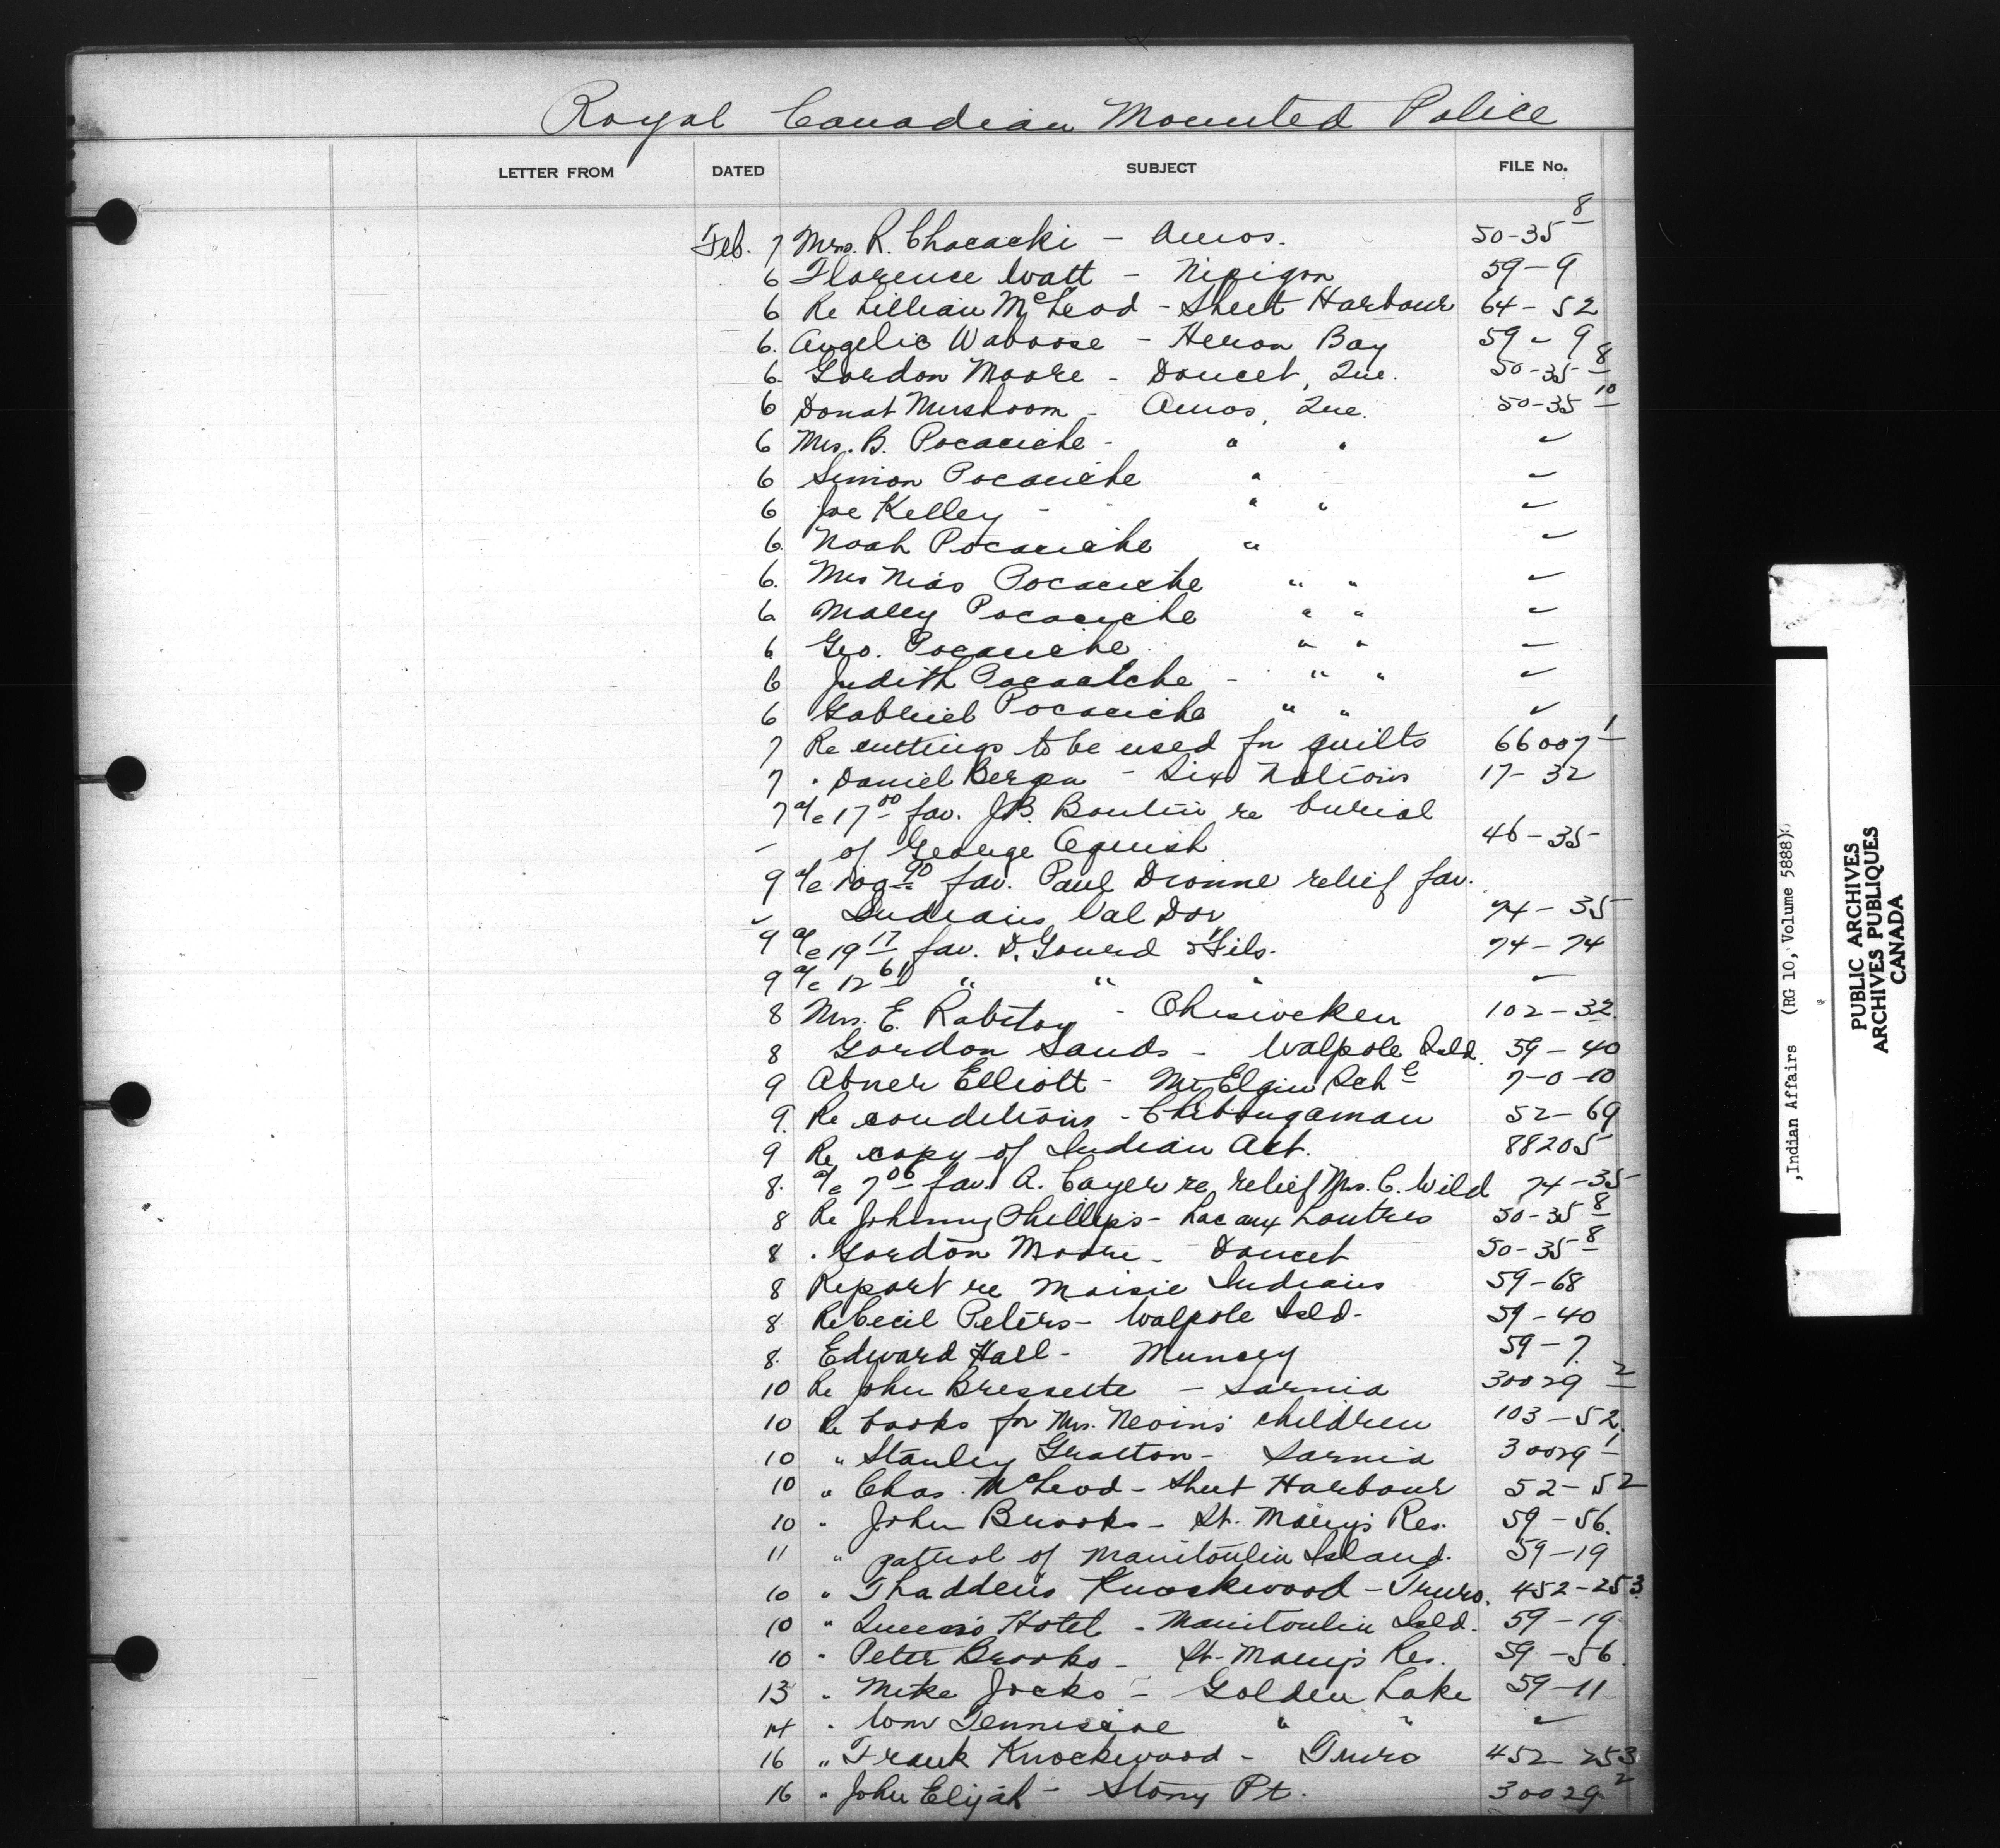 Royal Canadian Mounted Police
LETTER FROM DATED SUBJECT FILE No.
Feb. 7 Mrs. R. Chacacki - Amos. 50-35 8
6 Florence Watt - Nipigon 59-9
6 Re Lillian McLeod - Sheet Harbour 64-52
6. Angelic Waboose - Heron Bay 59-9
6. Gordon Moore - Doucet, Que. 50-35 8
6 Donat Mushoom - Amos, Que. 50-35 10
6 Mrs. B. Pocaciche - " " "
6 Simon Pocaciche " "
6 Joe Kelley - " " "
6. Noah Pocaciche " "
6. Mrs Pocaciche " " "
6 Pocaciche " " "
6 Geo. Pocaciche " " "
6 Judith Pocaciche - " " "
6 Gabriel Pocaciche " " "
7 Re cuttings to be used for quilts 66007 1
7 " Daniel Bergen - Six Nations 17-32
7 a/c 17 00 fav. J.B. Boutin re burial
" of George 46-35
9 a/c fav. Paul Dionne relief fav.
" Indians Val Dor 74-35
9 a/c 19 17 fav. D. Gourd & Fils. 74-74
9 a/c 12 61 " " " "
8 Mrs. E. - Ohsweken 102-32
8 Gordon Sands - Walpole Isld. 59-40
9 Abner Elliott - Mt Elgin Sch 7-0-10
9. Re conditions - Chibougamau 52-69
9 Re copy of Indian Act. 88205
8. a/c 7 06 fav. A. Cayer re relief Mrs. C. Wild 74-35
8 Re Johnny Phillips - Lac aux Loutres 50-35 8
8 " Gordon Moore - Doucet 50-35 8
8 Report re Moisie Indians 59-68
8 Re Cecil Peters - Walpole Isld - 59-40
8. Edward Hall - Muncey 59-7.
10 Re John Bressette - Sarnia 30029 2
10 Re books for Mrs. Nevins children 103-52.
10 " Stanley Gratton - Sarnia 30029 1
10 " Chas. McLeod - Sheet Harbour 52-52
10 " John Brooks - St. Mary's Res. 59-56.
11 " patrol of Manitoulin Island. 59-19
10 " Thaddeus Knockwood - Truro. 452-253
10 " Queen's Hotel - Manitoulin Isld. 59-19
10 " Peter Brooks - St. Mary's Res. 59-56.
13 " Mike Jocko - Golden Lake 59-11
14 " Wm Tenniscoe " " "
16 " Frank Knockwood - Truro 452-253
16 " John Elijah - Stony Pt. 30029 2
,Indian Affairs (RG 10, Volume 5888)
PUBLIC ARCHIVES
ARCHIVES PUBLIQUES
CANADA